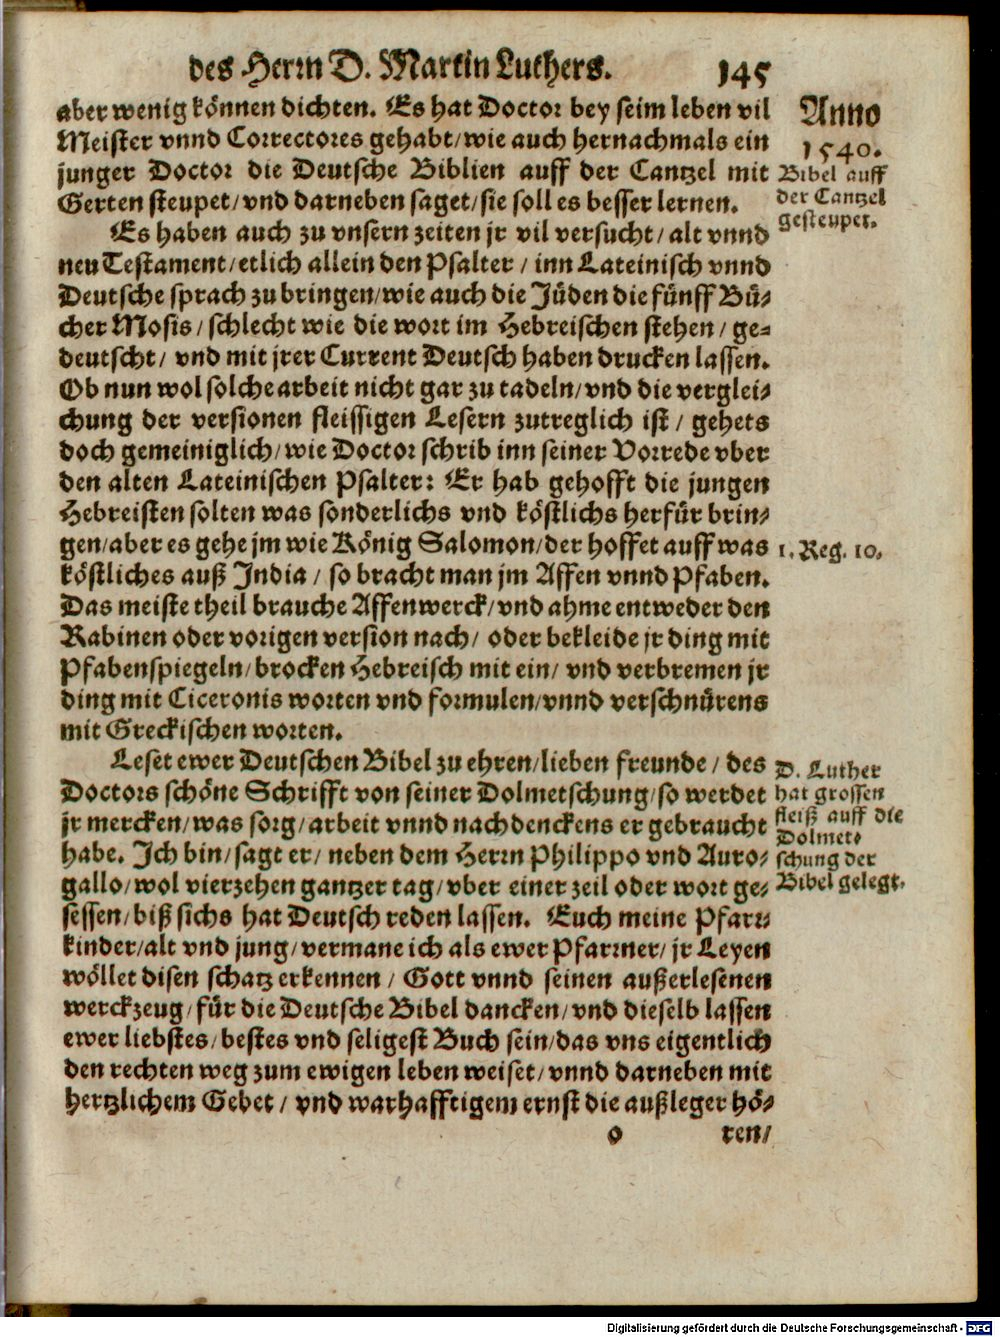 des Herrn D. Martin Luthers. 145
aber wenig können dichten. Es hat Doctor bey seim leben vil
Meister vnnd Correctores gehabt/wie auch hernachmals ein
junger Doctor die Deutsche Biblien auff der Cantzel mit
Gerten steupet/vnd darneben saget/sie soll es besser lernen.
Anno
1540.
Bibel auff
der Cantzel
gesteupet.
Es haben auch zu vnsern zeiten jr vil versucht/alt vnnd
neu Testament/etlich allein den Psalter/inn Lateinisch vnnd
Deutsche sprach zu bringen/wie auch die Jüden die fünff Bü-
cher Mosis/schlecht wie die wort im Hebreischen stehen/ge-
deutscht/vnd mit jrer Current Deutsch haben drucken lassen.
Ob nun wol solche arbeit nicht gar zu tadeln/vnd die verglei-
chung der versionen fleissigen Lesern zutreglich ist/gehets
doch gemeiniglich/wie Doctor schrib inn seiner Vorrede vber
den alten Lateinischen Psalter: Er hab gehofft die jungen
Hebreisten solten was sonderlichs vnd köstlichs herfür brin-
gen/aber es gehe jm wie König Salomon/der hoffet auff was
1. Reg. 10.
köstliches auß India/so bracht man jm Affen vnnd Pfaben.
Das meiste theil brauche Affenwerck/vnd ahme entweder den
Rabinen oder vorigen version nach/oder bekleide jr ding mit
Pfabenspiegeln/brocken Hebreisch mit ein/vnd verbremen jr
ding mit Ciceronis worten vnd formulen/vnnd verschnürens
mit Greckischen worten.
Leset ewer Deutschen Bibel zu ehren/lieben freunde/des
Doctors schöne Schrifft von seiner Dolmetschung/so werdet
jr mercken/was sorg/arbeit vnnd nachdenckens er gebraucht
habe. Ich bin/sagt er/neben dem Herrn Philippo vnd Auro-
gallo/wol vierzehen gantzer tag/vber einer zeil oder wort ge-
sessen/biß sichs hat Deutsch reden lassen. Euch meine Pfarr-
kinder/alt vnd jung/vermane ich als ewer Pfarrner/jr Leyen
wöllet disen schatz erkennen/Gott vnnd seinen außerlesenen
werckzeug/für die Deutsche Bibel dancken/vnd dieselb lassen
ewer liebstes/bestes vnd seligest Buch sein/das vns eigentlich
den rechten weg zum ewigen leben weiset/vnnd darneben mit
hertzlichem Gebet/vnd warhafftigem ernst die außleger hö-
D. Luther
hat grossen
fleiß auff die
Dolmet-
schung der
Bibel gelegt.
o ren/
Digitalisierung gefördert durch die Deutsche Forschungsgemeinschaft - DFG